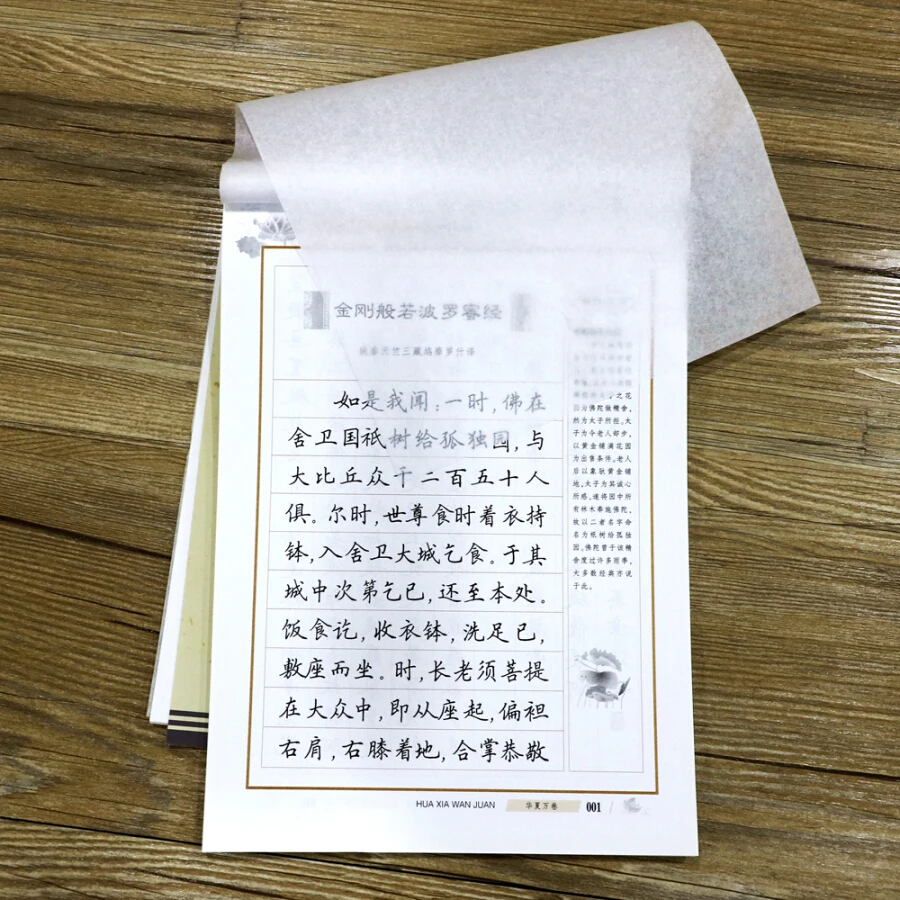 金刚般若波罗蜜经
姚秦天竺三藏鸠摩罗什译
如是我闻:一时,佛在
舍卫国祇树给孤独园,与
大比丘众千二百五十人
俱。尔时,世尊食时着衣持
钵,入舍卫大城乞食。于其
城中次第乞已,还至本处。
饭食讫,收衣钵,洗足已,
敷座而坐。时,长老须菩提
在大众中,即从座起,偏袒
右肩,右膝着地,合掌恭敬
之花
园为佛陀做精舍,
然为太子所拒,太
子为令老人却步,
以黄金铺满花园
为出售条件。老人
后以象驮黄金铺
地,太子为其诚心
所感,遂将园中所
有林木奉施佛陀,
故以二者名字命
名为祇树给孤独
园。佛陀曾于该精
舍度过许多雨季,
大多数经典亦说
于此。
HUA XIA WAN JUAN 华夏万卷 001